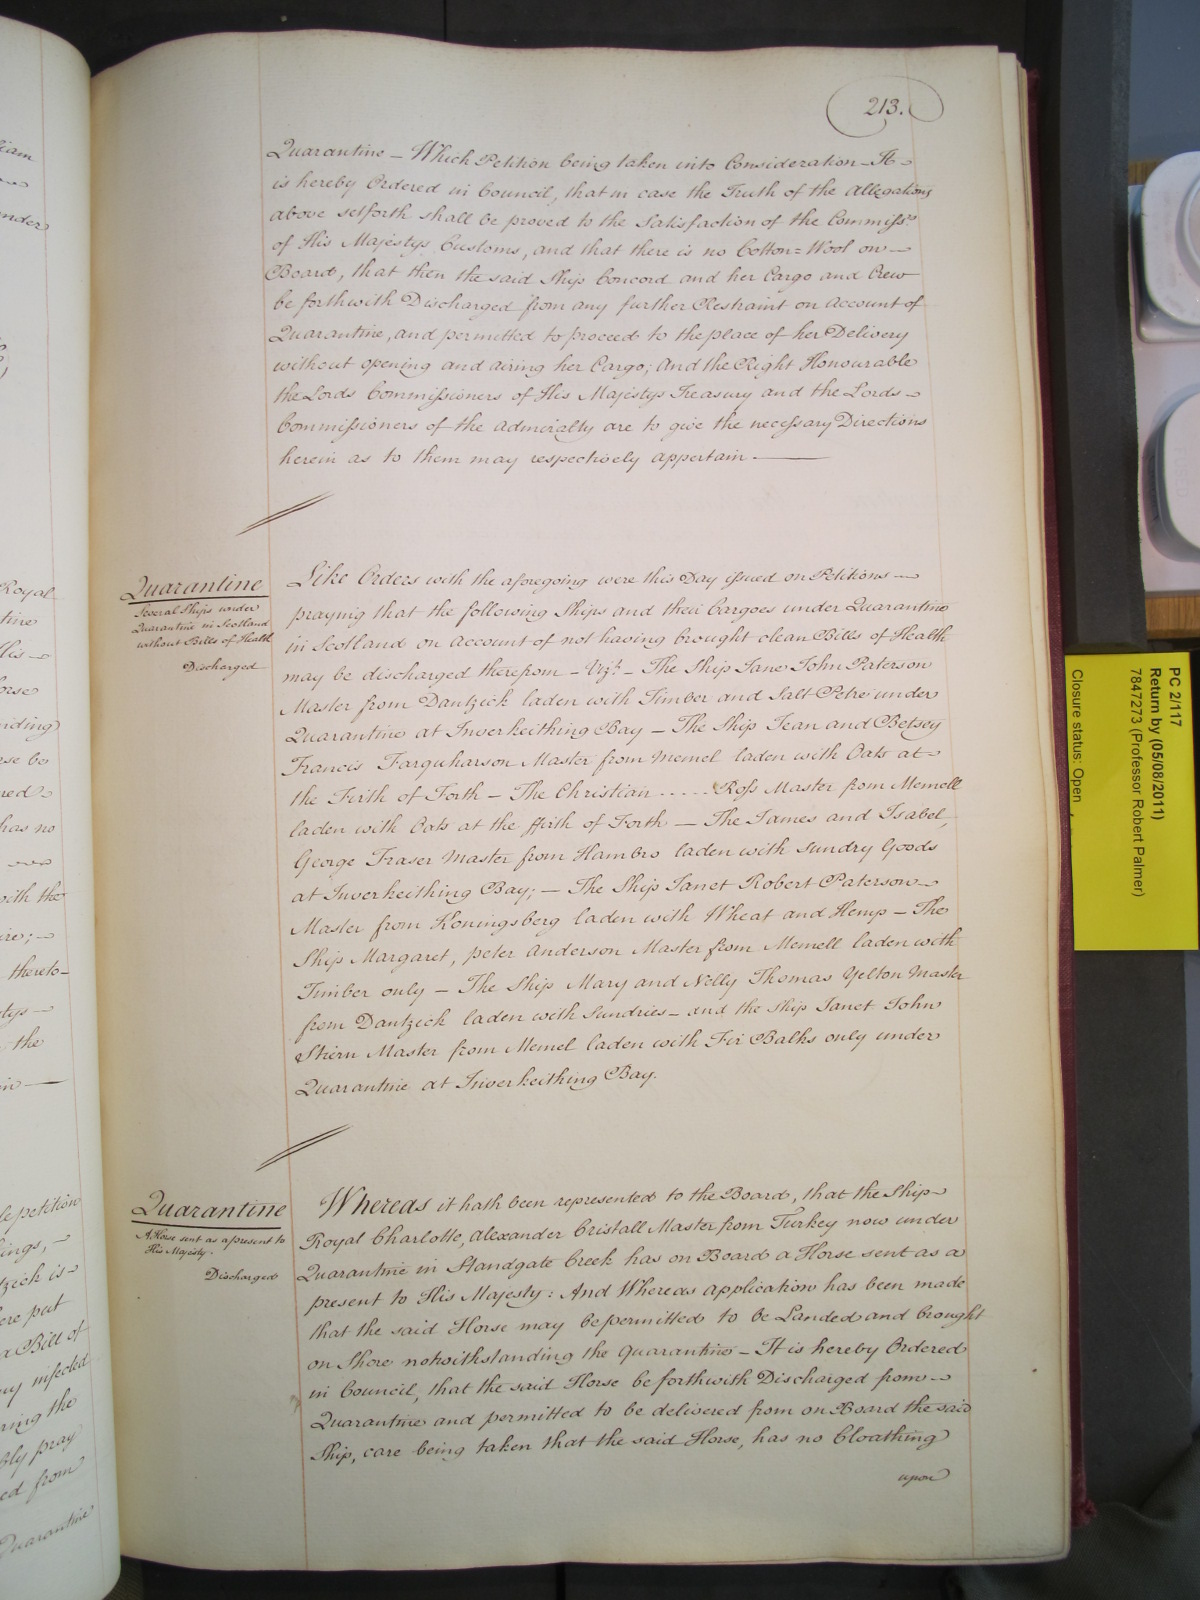 213.
Quarantine – Which Petition being taken into Consideration – It
is hereby Ordered in Council, that in case the Truth of the Allegations
above setforth shall be proved to the Satisfaction of the Commissrs.
of His Majestys Customs, and that there is no Cotton=Wool on —
Board, that then the said Ship Concord and her Cargo and Crew
be forthwith Discharged from any further Restraint on Account of
Quarantine, and permitted to proceed to the place of her Delivery
without opening and airing her Cargo; And the Right Honourable
the Lords Commissioners of His Majestys Treasury and the Lords –
Commissioners of the Admiralty are to give the necessary Directions
herein as to them may respectively appertain ———
Quarantine
Several Ships under
Quarantine in Scotland
without Bills of Health
Discharged
Like Orders with the aforegoing were this Day issued on Petitions —
praying that the following Ships and their Cargoes under Quarantine
in Scotland on Account of not having brought clean Bills of Health
may be discharged therefrom – Vizt. – The Ship Jane John Paterson
Master from Dantzick laden with Timber and Salt Petre under
Quarantine at Inverkeithing Bay – The Ship Jean and Betsey
Francis Farquharson Master from Memel laden with Oats at –
the Firth of Forth – The Christian ..... Ross Master from Memell
laden with Oats at the ffirth of Forth – The James and Isabel,
George Fraser Master from Hambro laden with Sundry Goods
at Inverkeithing Bay; – The Ship Janet Robert Paterson –
Master from Koningsberg laden with Wheat and Hemp – The
Ship Margaret, peter Anderson Master from Memell laden with
Timber only – The Ship Mary and Nelly Thomas Yelton Master
from Dantzick laden with Sundries – and the Ship Janet John
Stirn Master from Memel laden with Fir Balks only under
Quarantine at Inverkeithing Bay.
Quarantine
A Horse sent as a present to
His Majesty.
Discharged
Whereas it hath been represented to the Board, that the Ship –
Royal Charlotte, Alexander Cristall Master from Turkey now under
Quarantine in Standgate Creek has on Board a Horse sent as a
present to His Majesty: And Whereas Application has been made
that the said Horse may be permitted to be Landed and brought
on Shore notwithstanding the Quarantine – It is hereby Ordered
in Council, that the said Horse be forthwith Discharged from –
Quarantine and permitted to be delivered from on Board the said
Ship, care being taken that the said Horse, has no Cloathing
upon
PC 2/117
Return by (05/08/2011)
7847273 (Professor Robert Palmer)
Closure status: Open